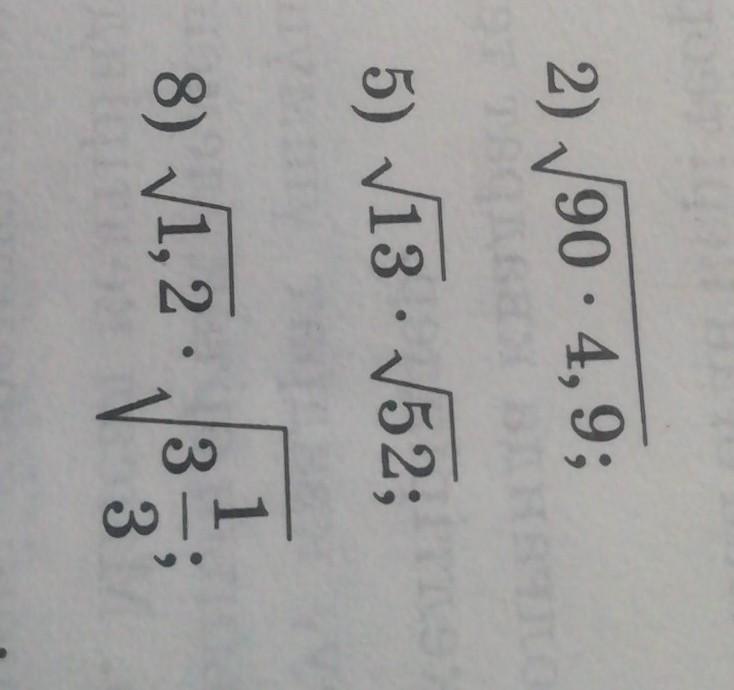 2) √90 · 4,9;
5) √13 · √52;
8) √1,2 · √3 1/3;